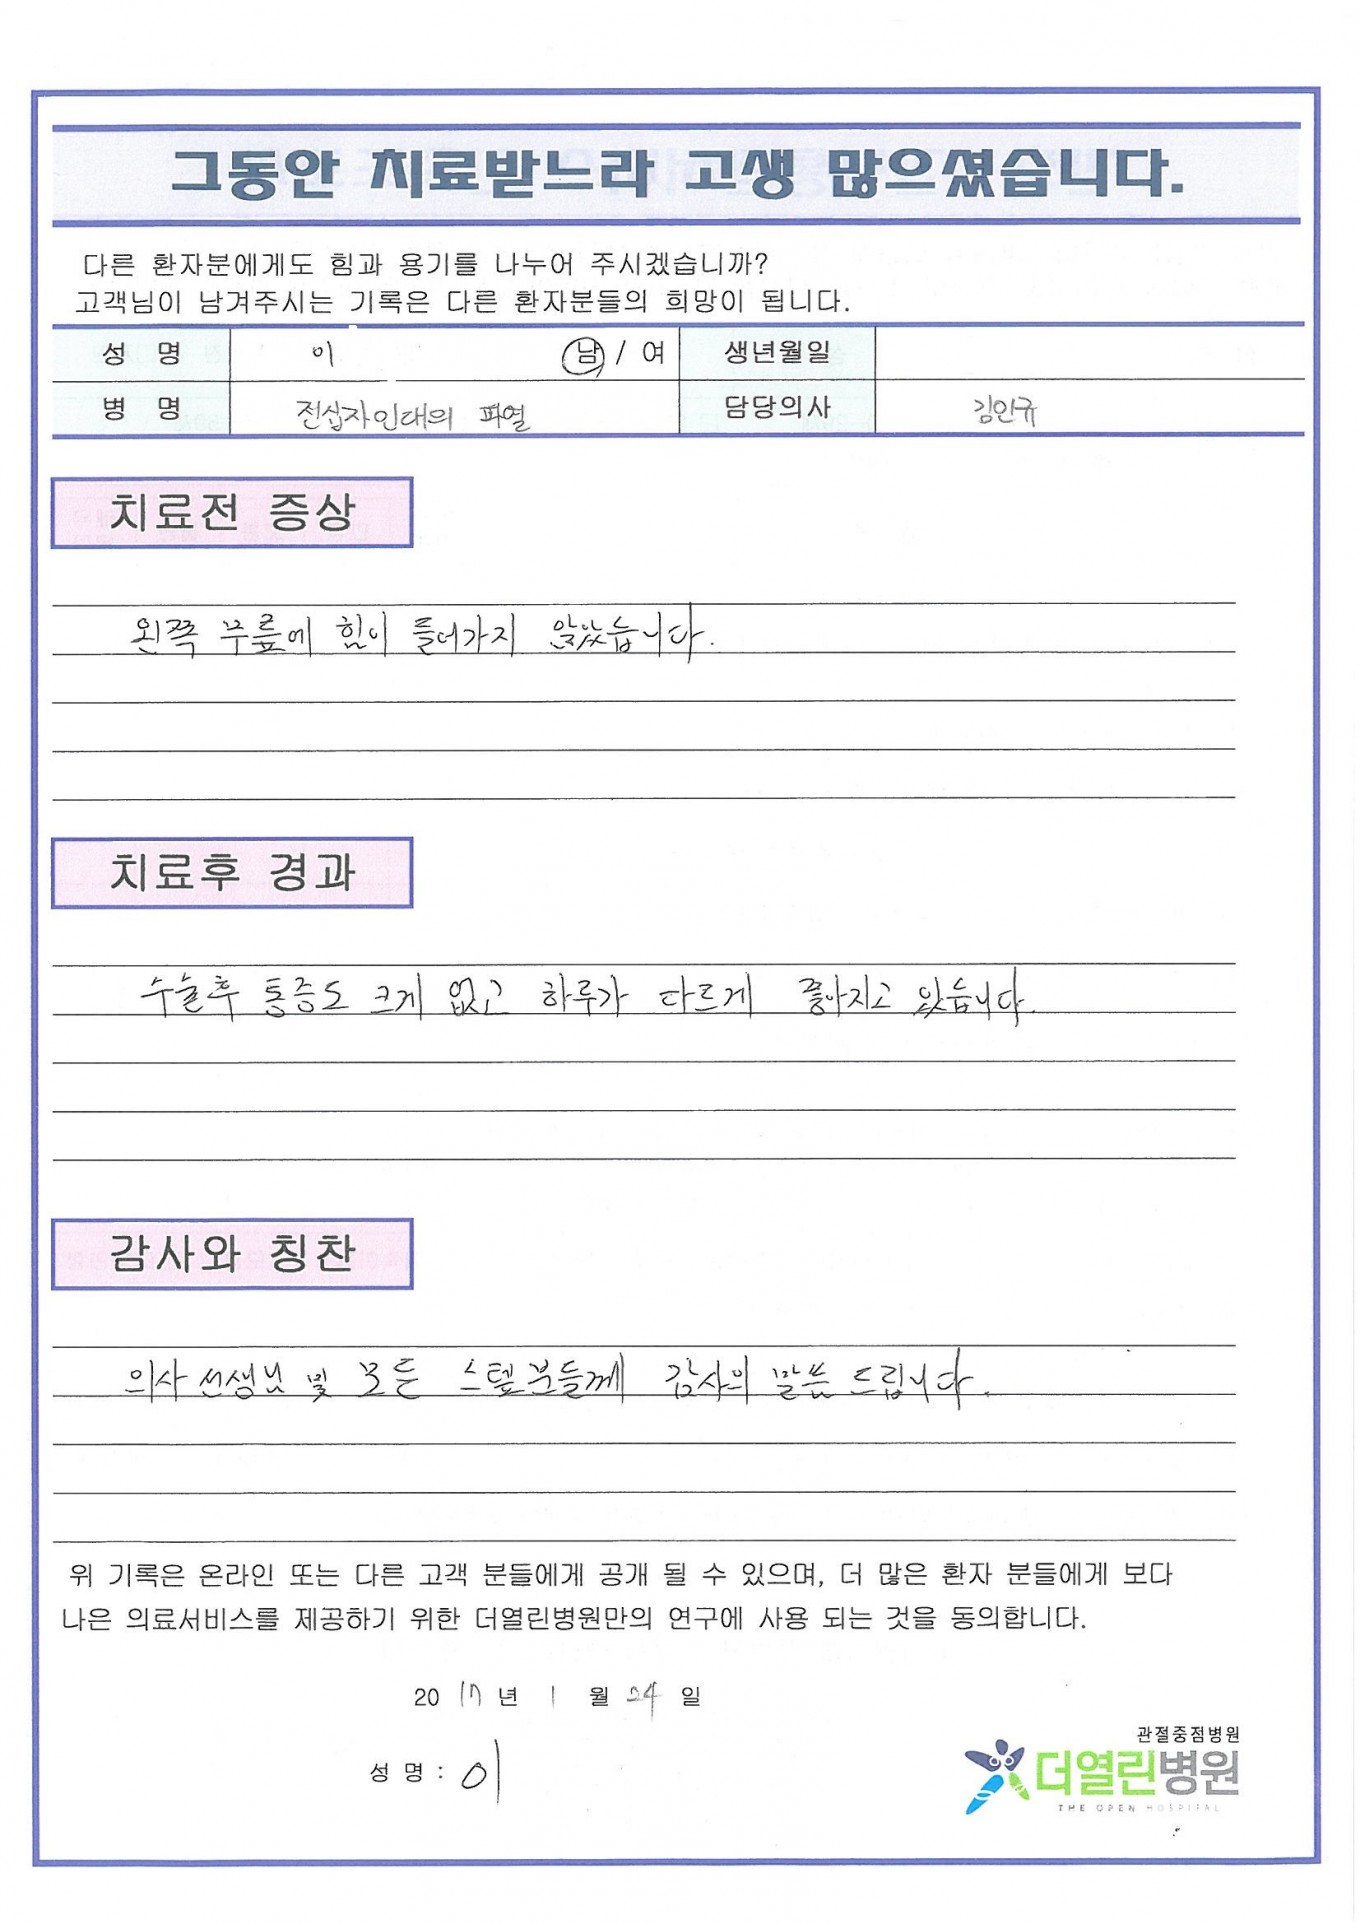 그동안 치료받느라 고생 많으셨습니다.
다른 환자분에게도 힘과 용기를 나누어 주시겠습니까?
고객님이 남겨주시는 기록은 다른 환자분들의 희망이 됩니다.
성 명 이 남 / 여 생년월일
병 명 전십자인대의 파열 담당의사 김인규
치료전 증상
왼쪽 무릎에 힘이 들어가지 않았습니다.
치료후 경과
수술후 통증도 크게 없고 하루가 다르게 좋아지고 있습니다.
감사와 칭찬
의사선생님 및 모든 스텝분들께 감사의 말씀 드립니다.
위 기록은 온라인 또는 다른 고객 분들에게 공개 될 수 있으며, 더 많은 환자 분들에게 보다
나은 의료서비스를 제공하기 위한 더열린병원만의 연구에 사용 되는 것을 동의합니다.
2017년 1월 24일
성 명 : 이
관절중점병원
더열린병원
THE OPEN HOSPITAL